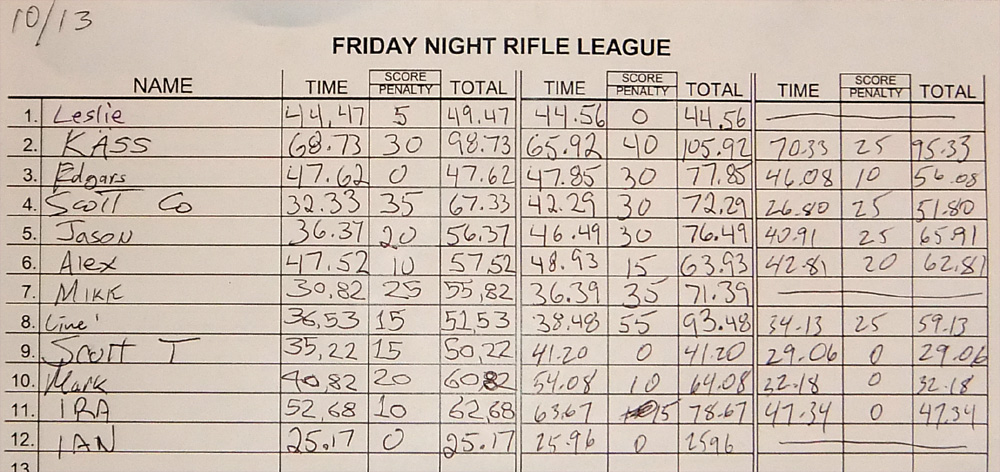 10/13
FRIDAY NIGHT RIFLE LEAGUE
NAME TIME SCORE PENALTY TOTAL TIME SCORE PENALTY TOTAL TIME SCORE PENALTY TOTAL
1. Leslie 44,47 5 49.47 44.56 0 44.56
2. KASS 68.73 30 98.73 65.92 40 105.92 70.33 25 95.33
3. Edgars 47.62 0 47.62 47.85 30 77.85 46.08 10 56.08
4. Scott Co 32.33 35 67.33 42.29 30 72.29 26.80 25 51.80
5. Jason 36.37 20 56.37 46.49 30 76.49 40.91 25 65.91
6. Alex 47.52 10 57.52 48.93 15 63.93 42.81 20 62.81
7. MIKE 30,82 25 55,82 36.39 35 71.39
8. 36,53 15 51,53 38.48 55 93.48 34.13 25 59.13
9. Scott T 35,22 15 50,22 41.20 0 41.20 29.06 0 29.06
10. Mark 40,82 20 6082 54.08 10 64.08 22.18 0 32.18
11. IRA 52,68 10 62,68 63.67 15 78.67 47.34 0 47.34
12. IAN 25.17 0 25.17 25.96 0 2596
13